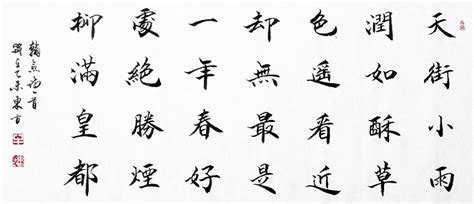 天街小雨
潤如酥草
色遥看近
却無最是
一年春好
處絶勝煙
柳滿皇都
韓愈詩一首
乙未東方